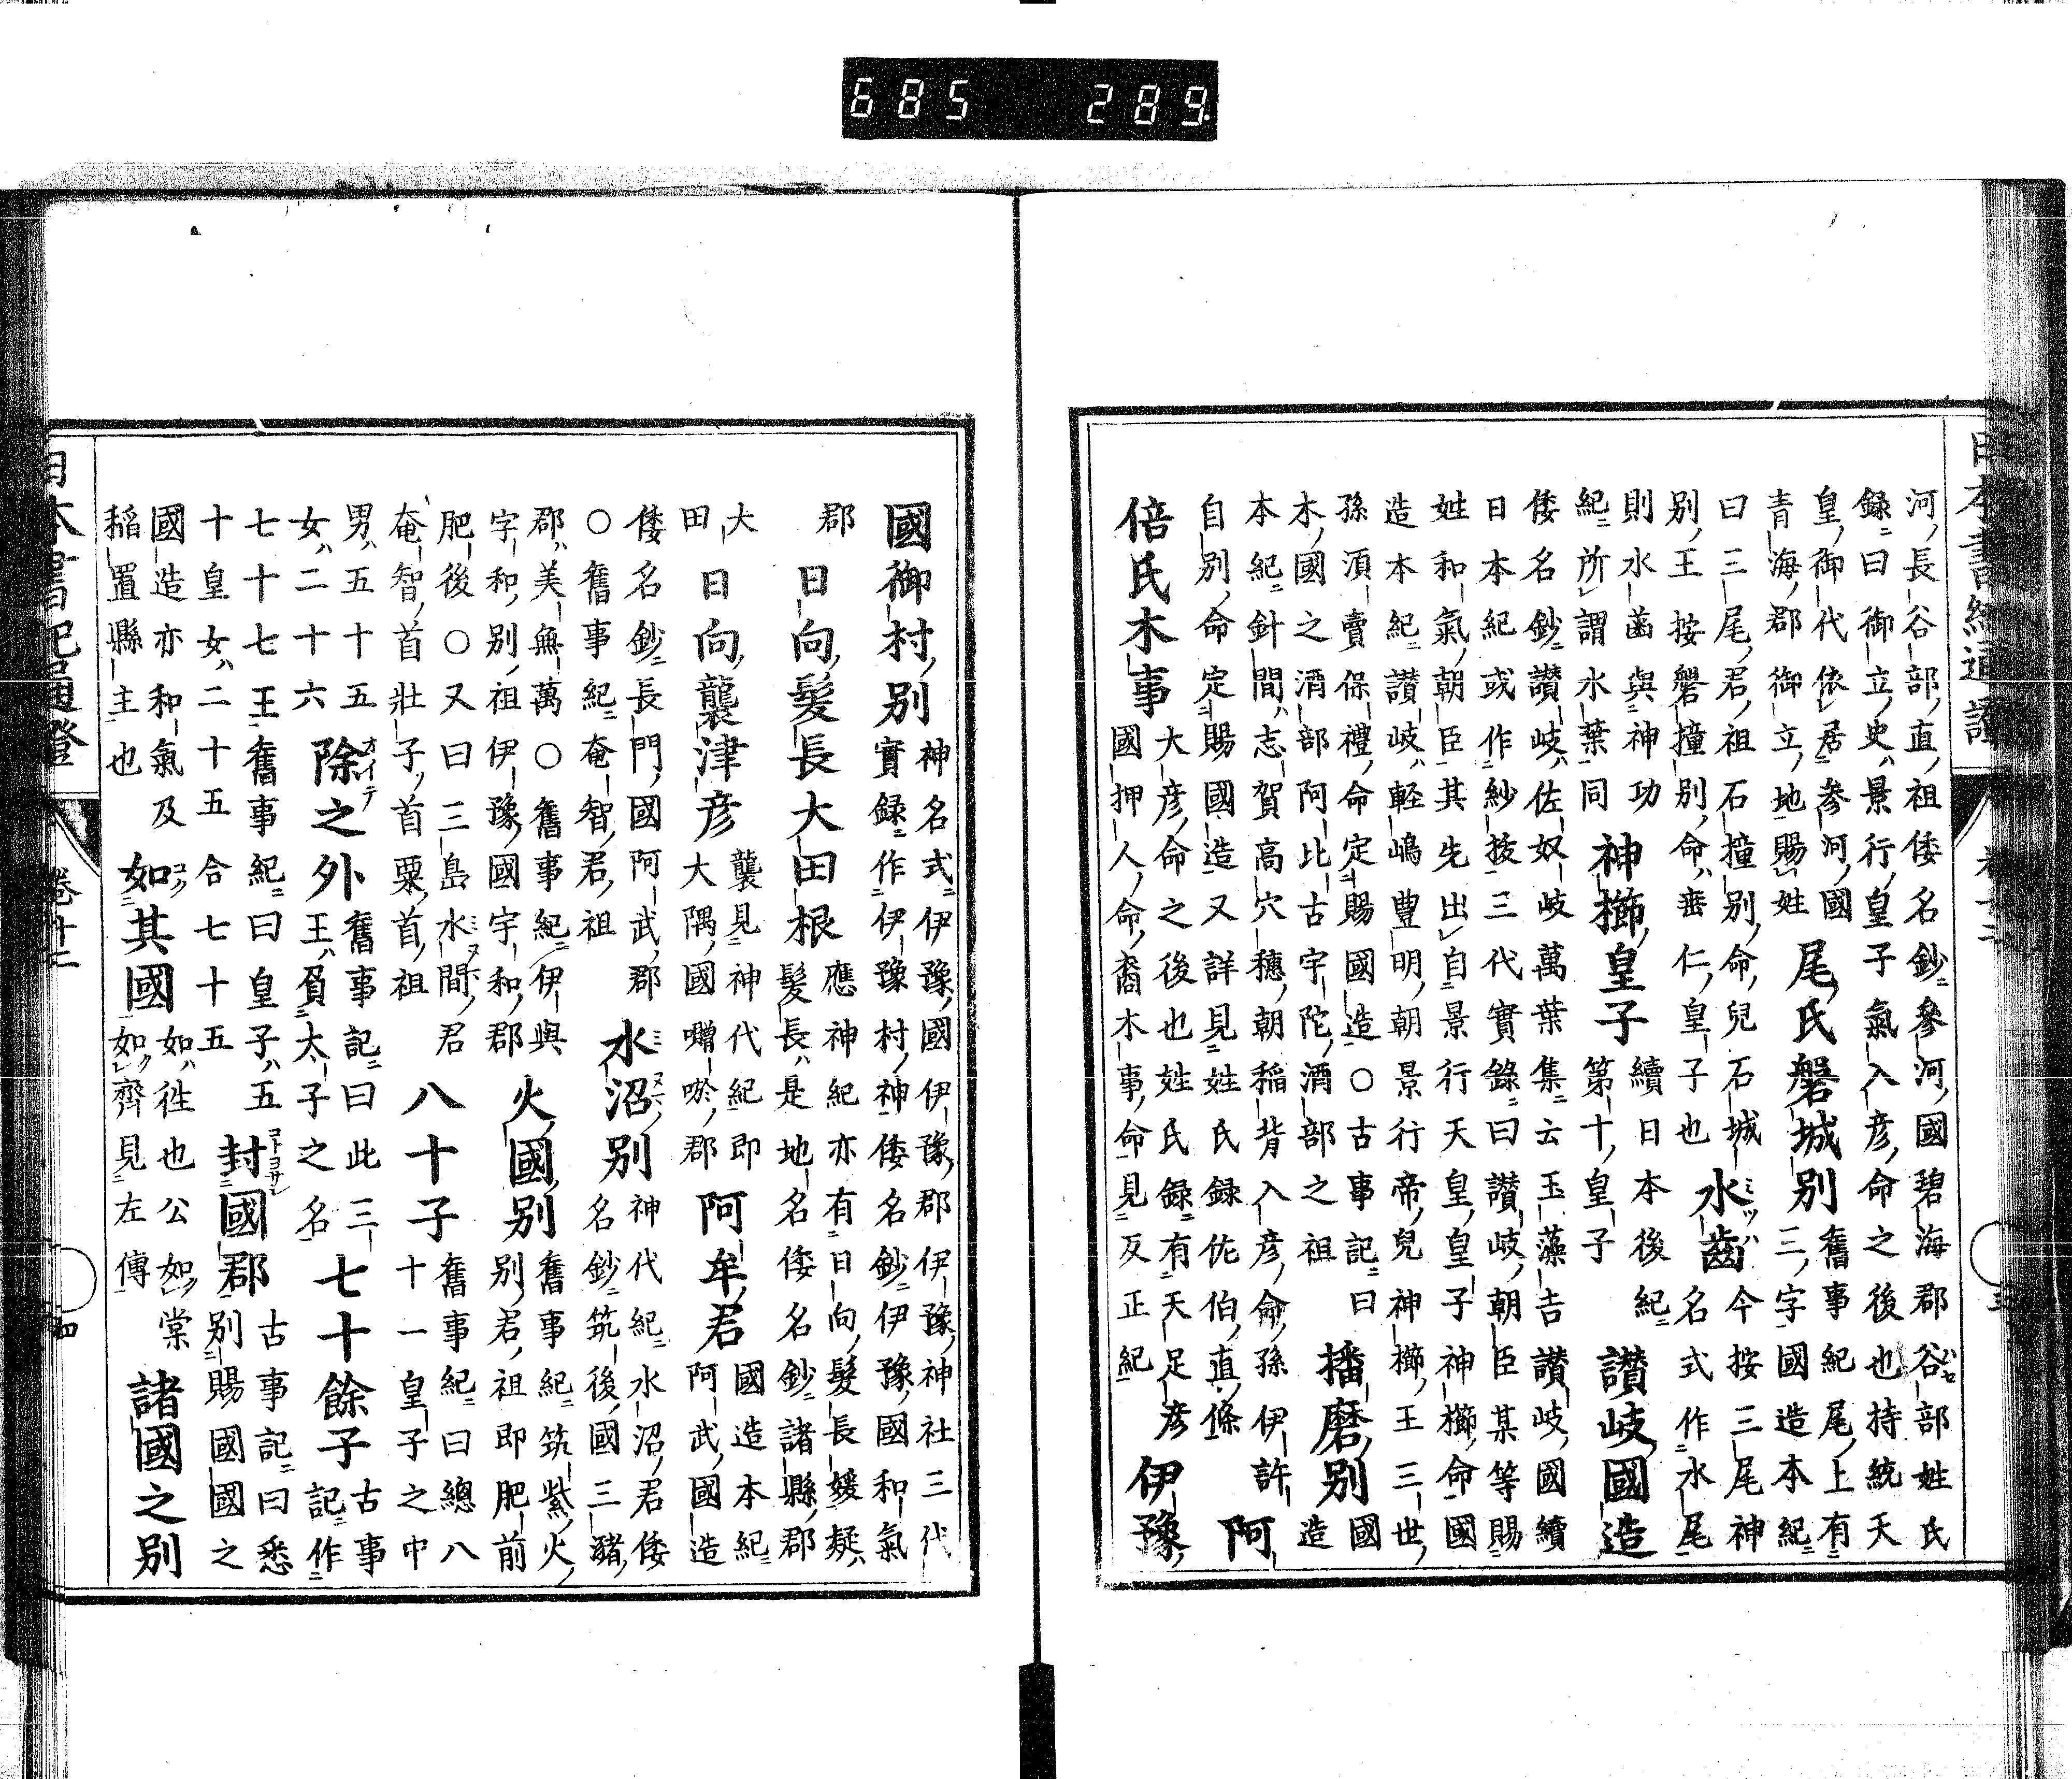 685 289
河長谷部直祖倭名鈔參河國碧海郡谷部姓氏
錄曰御立史景行皇子氣入彥命之後也持統天
皇御代依居參河國
青海郡御立地賜姓
尾氏磐城別
舊事紀尾上有
三字國造本紀
曰三尾君祖石撞別命兒石城
別王按磐撞別命垂仁皇子也
水齒
今按三尾神
名式作水尾
則水齒與神功
紀所謂水葉同
神櫛皇子
續日本後紀
第十皇子
讃岐國造
倭名鈔讃岐佐奴岐萬葉集云玉藻吉讃岐國續
日本紀或作紗拔三代實錄曰讃岐朝臣某等賜
姓和氣朝臣其先出自景行天皇皇子神櫛命國
造本紀讃岐輕嶋豊明朝景行帝兒神櫛王三世
孫須賣保禮命定賜國造○古事記曰
木國之酒部阿比古宇陀酒部之祖
播磨別
國
造
本紀針間志賀高穴穗朝稲背入彥命孫伊許
自別命定賜國造又詳見姓氏録佐伯直條
阿
倍氏木事
大彥命之後也姓氏録有天足彥
國押人命裔木事命見反正紀
伊豫
國御村別
神名式伊豫國伊豫郡伊豫神社三代
實録作伊豫村神倭名鈔伊豫國和氣
郡
日向髮長大田根
應神紀亦有日向髮長媛疑
髮長是地名倭名鈔諸縣郡
大
田
日向襲津彥
襲見神代紀即
大隅國囎唹郡
阿牟君
國造本紀
阿武國造
倭名鈔長門國阿武郡
○舊事紀奄智君祖
水沼別
神代紀水沼君倭
名鈔筑後國三潴
郡美無萬○舊事紀伊與
宇和別祖伊豫國宇和郡
火國別
舊事紀筑紫火
別君祖即肥前
肥後○又曰三島水間君
奄智首壯子首粟首祖
八十子
舊事紀曰總八
十一皇子之中
男五十五
女二十六
除之外
舊事記曰此三
王負太子之名
七十餘子
古事
記作
七十七王舊事紀曰皇子五
十皇女二十五合七十五
封國郡
古事記曰悉
別賜國國之
國造亦和氣及
稲置縣主也
如其國
如徃也公如棠
如齊見左傳
諸國之別